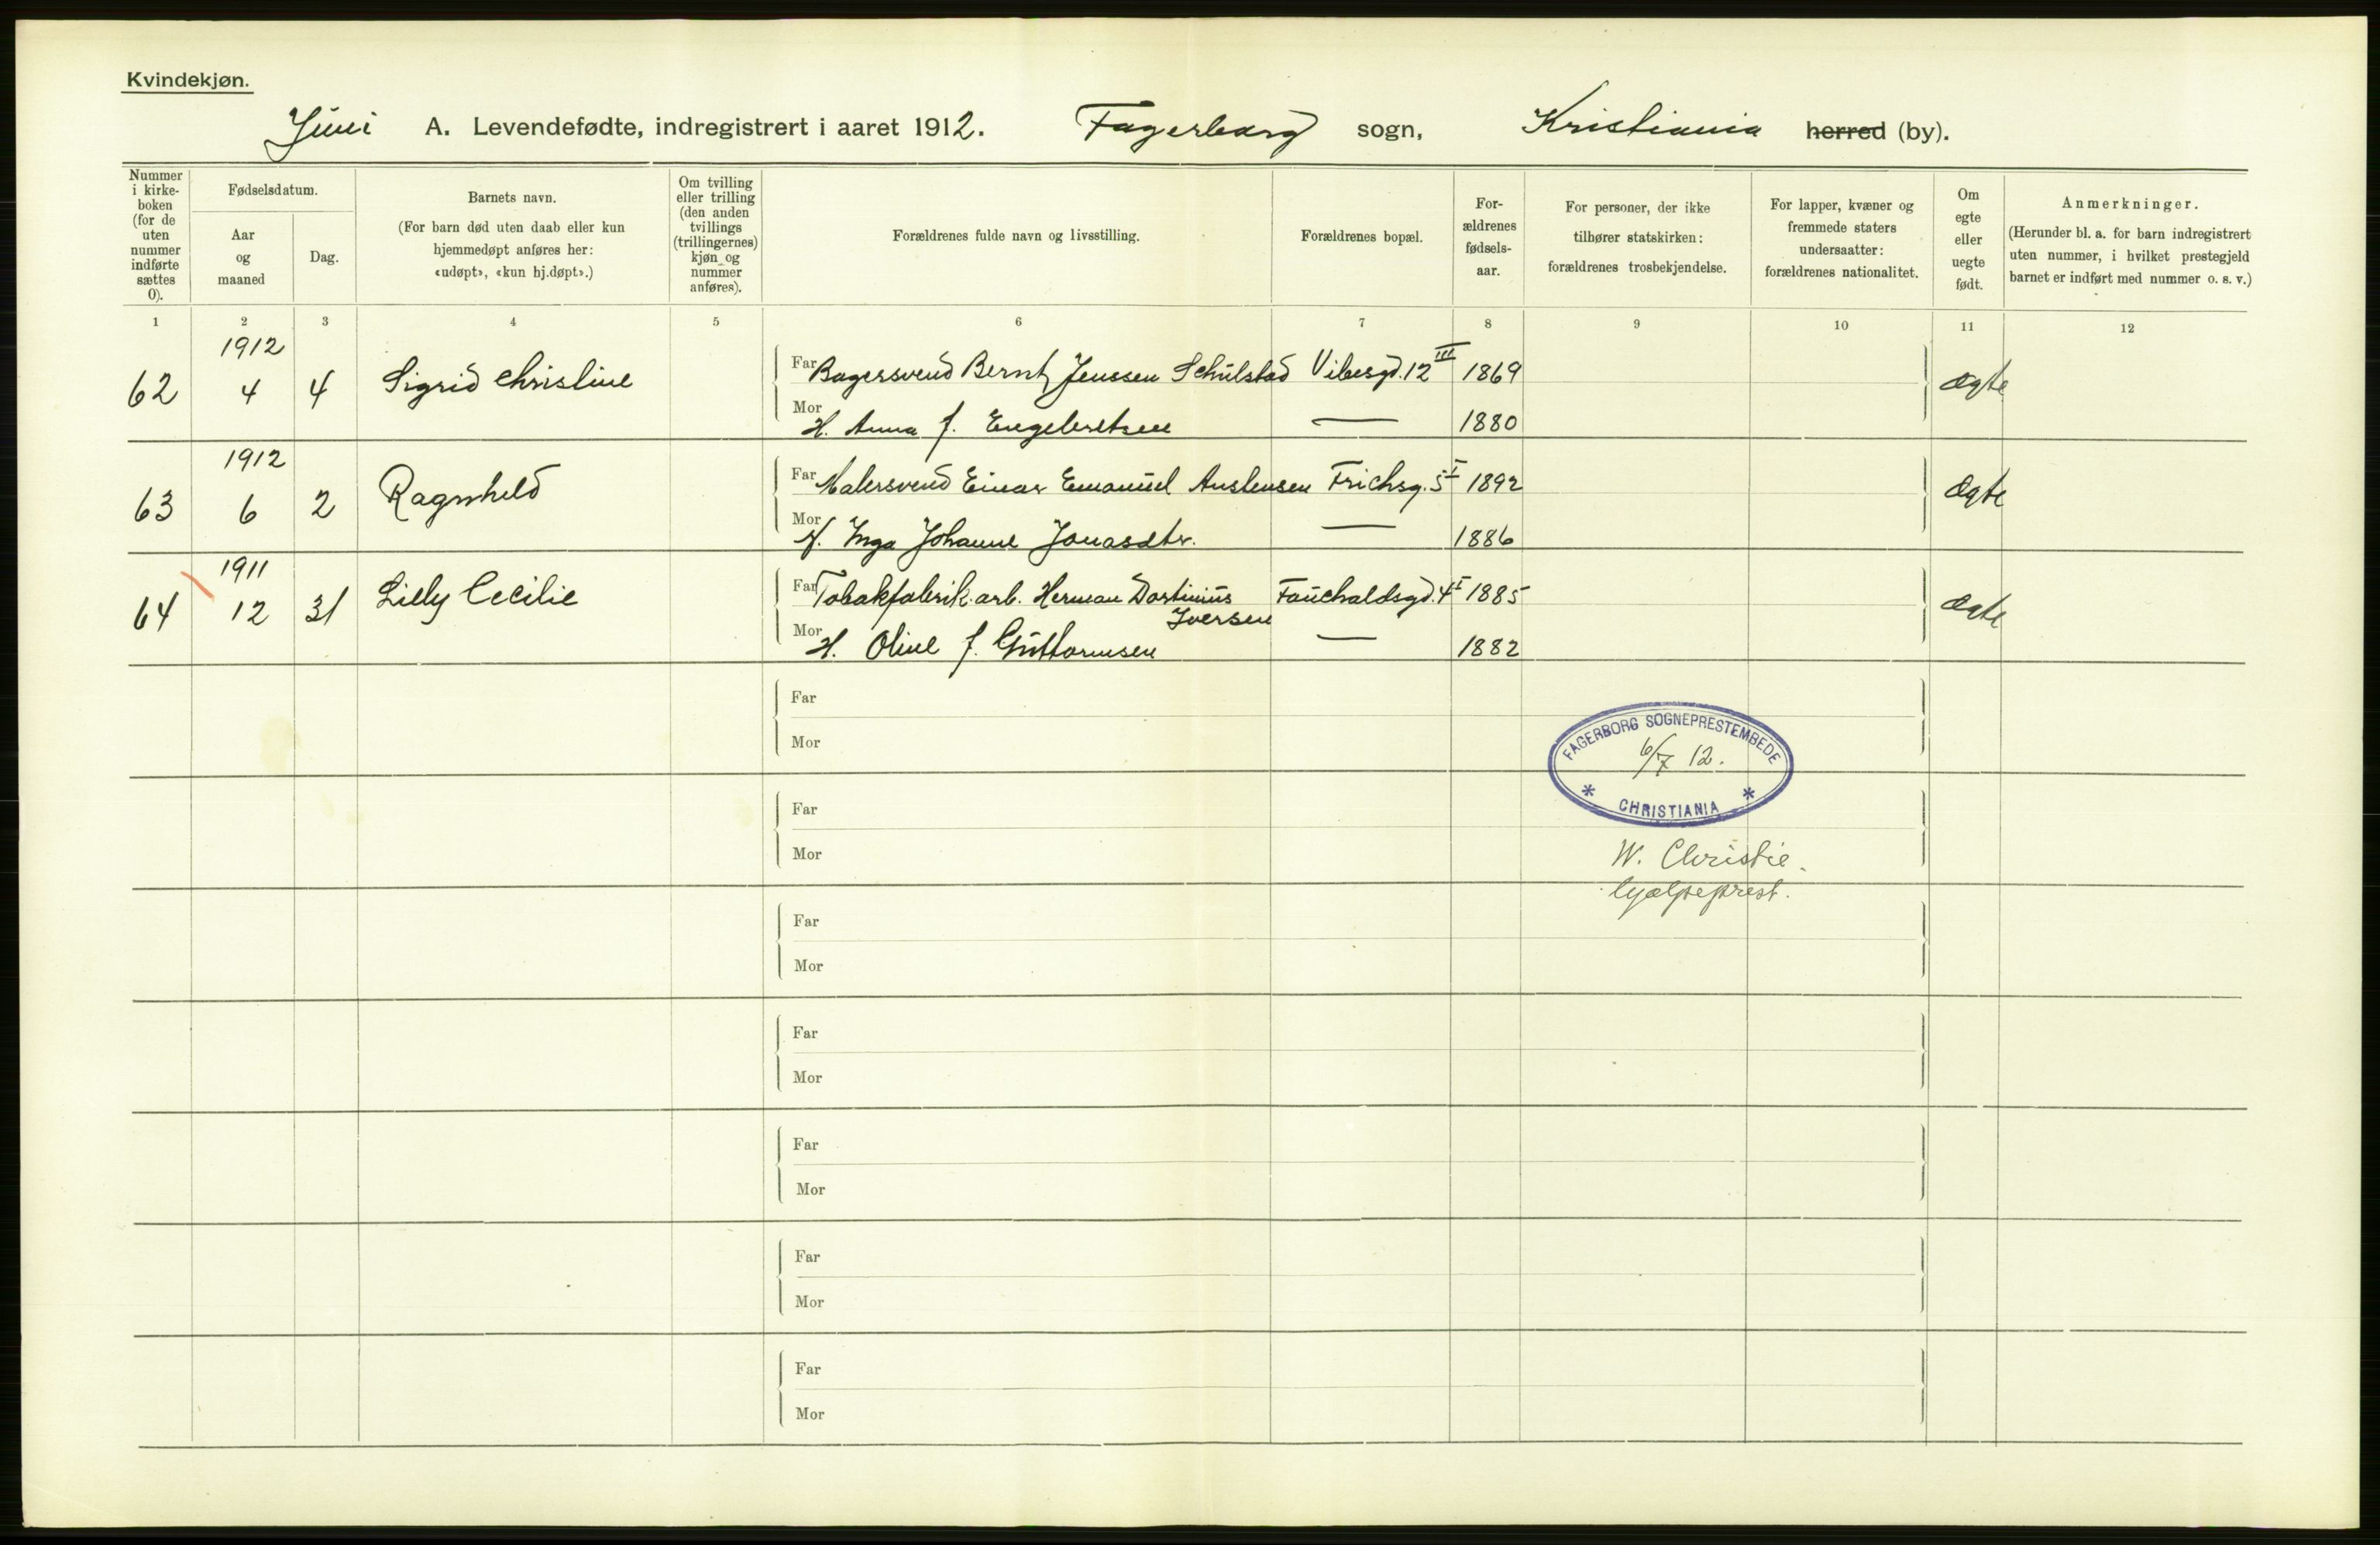 Kvindekjøn.
Juni A. Levendefødte, indregistrert i aaret 1912. Fagerborg sogn, Kristiania herred (by).
Nummer i kirke-boken (for de uten nummer indførte sættes 0).
Fødselsdatum.
Aar og maaned
Dag.
Barnets navn.
(For barn død uten daab eller kun
hjemmedøpt anføres her:
«udøpt», «kun hj.døpt».)
Om tvilling
eller trilling
(den anden
tvillings
(trillingernes)
kjøn og
nummer
anføres).
Forældrenes fulde navn og livsstilling.
Forældrenes bopæl.
For-
ældrenes
fødsels-
aar.
For personer, der ikke
tilhører statskirken:
forældrenes trosbekjendelse.
For lapper, kvæner og
fremmede staters
undersaatter:
forældrenes nationalitet.
Om
egte
eller
uegte
født.
Anmerkninger.
(Herunder bl. a. for barn indregistrert
uten nummer, i hvilket prestegjeld
barnet er indført med nummer o. s. v.)
1 2 3 4 5 6 7 8 9 10 11 12
1912
62 4 4 Sigrid Christine Far Bagersvend Bernt Jenssen Schulstad Vibesgd. 12 III 1869 ægte
Mor H. Anna f. Engebretsen — 1880
1912
63 6 2 Ragnhild Far Malersvend Einar Emanuel Austensen Frichsg. 5 I 1892 ægte
Mor H. Inga Johanne Jonasdtr. — 1886
1911
64 12 31 Lilly Cecilie Far Tobakfabrik.arb. Herman Dortinius Fauchaldsgd. 4 I 1885 ægte
Iversen
Mor H. Oline f. Guttormsen — 1882
Far
Mor
FAGERBORG SOGNEPRESTEMBEDE
6/7 12.
* CHRISTIANIA *
Far
Mor
W. Christie.
hjælpeprest.
Far
Mor
Far
Mor
Far
Mor
Far
Mor
Far
Mor